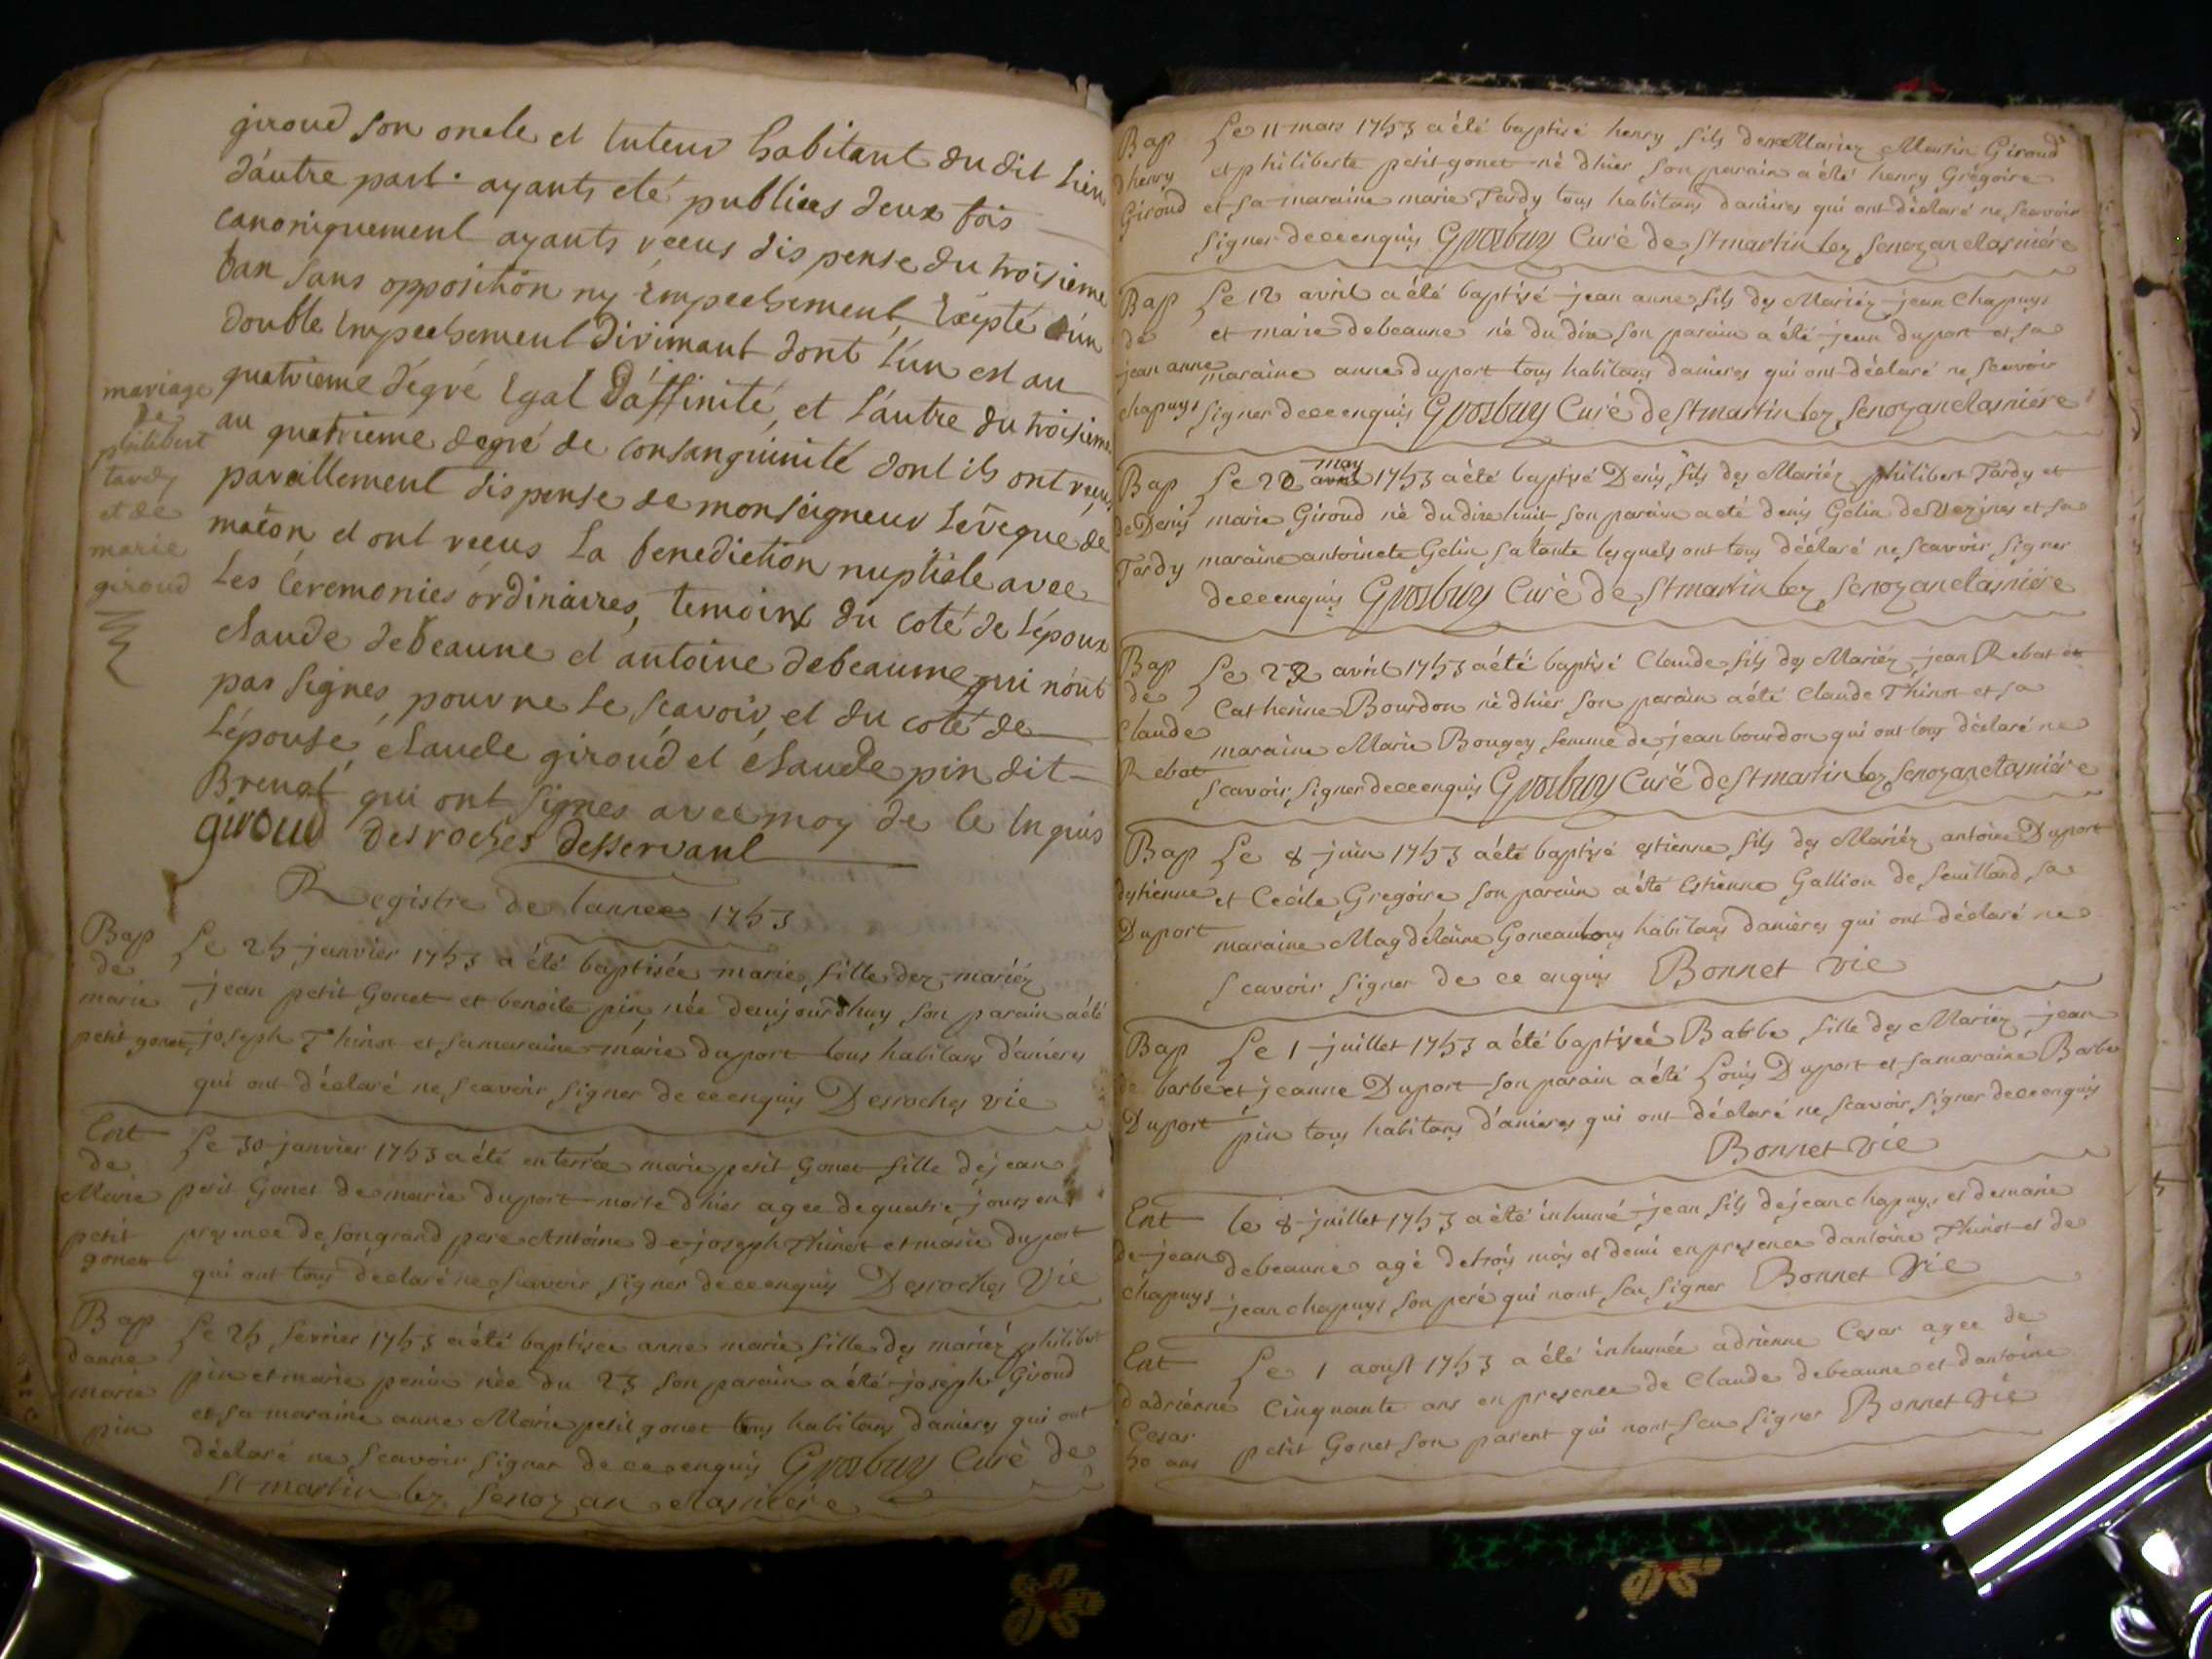 giroud son oncle et tuteur habitant du dit lieu
d'autre part. ayants eté publiees deux fois
canoniquement ayants recus dispense du troisieme
ban sans opposition ny empechement, Exepté d'un
double empechement dirimant dont l'un est au
quatrieme dégré Egal d'affinité, et l'autre du troisieme
au quatrieme degré de consanguinité dont ils ont recus
pareillement dispense de monseigneur Lévêque de
macon et ont recus La benediction nuptiale avec
Les Ceremonies ordinaires, temoins du coté de Lépoux
claude debeaune et antoine debeaune qui nont
pas signes pour ne le scavoir, et du coté de
Lépouse, claude giroud et claude pin dit
Brenot qui ont signes avec moy de ce Enquis
giroud desroches desservant
mariage
de
philibert
tardy
et de
marie
giroud
Registre de lannee 1753
Bap
de
marie
petit gonet
Le 25 janvier 1753 a été baptisée marie fille dez mariéz
jean petit Gonet et benoite pin née daujourdhuy son parain a été
joseph Thinot et sa maraine marie duport tous habitans d'anieres
qui ont déclaré ne scavoir signer de ce enquis Desroches vic
Ent
de
Marie
petit
gonet
Le 30 janvier 1753 a été enterrée marie petit Gonet fille de jean
petit Gonet de marie duport morte d'hier agee de quatre jours en
presence de son grand pere Antoine de joseph Thinot et marie duport
qui ont tous declaré ne scavoir signer de ce enquis Desroches Vic
Bap
danne
marie
pin
Le 25 fevrier 1753 a été baptisee anne marie fille des mariéz philibert
pin et marie penin née du 23 son parain a été joseph Giroud
et sa maraine anne Marie petit gonet tous habitans danieres qui ont
déclaré ne scavoir signer de ce enquis Grosbuy Curé de
St martin lez Senozan et asniére
Bap
dhenry
Giroud
Le 11 mars 1753 a été baptisé henry fils des Mariez Martin Giroud
et philiberte petit gonet né dhier son parain a été henry Grégoire
et sa maraine marie Tardy tous habitans danieres qui ont déclaré ne scavoir
signer de ce enquis Grosbuy Curé de St martin lez Senozan et asniére
Bap
de
jean anne
chapuys
Le 12 avril a été baptisé jean anne fils des Mariéz jean Chapuys
et marie debeaune né du dix son parain a été jean duport et sa
maraine anne duport tous habitans danieres qui ont déclaré ne scavoir
signer de ce enquis Grosbuy Curé de St martin lez Senozan et asniére
Bap
de Denis
Tardy
may
Le 20 avril 1753 a été baptisé Denis fils des Mariéz philibert Tardy et
marie Giroud né du dix huit son parain a eté denis Gelin de Vezines et sa
maraine antoinete Gelin sa tante lesquels ont tous déclaré ne scavoir signer
de ce enquis Grosbuy Curé de St martin lez Senozan et asniére
Bap
de
Claude
Rebat
Le 22 avril 1753 a été baptisé Claude fils des Mariéz jean Rebat et
Catherine Bourdon né dhier son parain a été Claude Thinot et sa
maraine Marie Bougey femme de jean bourdon qui ont tous déclaré ne
scavoir signer de ce enquis Grosbuy Curé de St martin lez Senozan et asniére
Bap
destienne
Duport
Le 8 juin 1753 a été baptisé estienne fils des Mariéz antoine Duport
et Cecile Gregoire son parain a été Estienne Gallion de senilland sa
maraine Magdeleine Goneau tous habitans danieres qui ont déclaré ne
scavoir signer de ce enquis Bonnet vic
Bap
de barbe
Duport
Le 1 juillet 1753 a été baptisée Babbe fille des Mariez jean
et jeanne Duport son parain a été Louis Duport et sa maraine Barbe
pin tous habitans d'anieres qui ont déclaré ne scavoir signer de ce enquis
Bonnet Vic
Ent
de jean
chapuys
le 8 juillet 1753 a été inhumé jean fils de jean chapuys et de marie
debeaune agé de trois mois et demi en presence dantoine Thinot et de
jean chapuys son peré qui nont sceu signer Bonnet Vic
Ent
dadrienne
Cesar
50 ans
Le 1 aoust 1753 a été inhumée adrienne Cesar agee de
Cinquante ans en presence de Claude debeaune et dantoine
petit Gonet son parent qui nont sceu signer Bonnet Vic